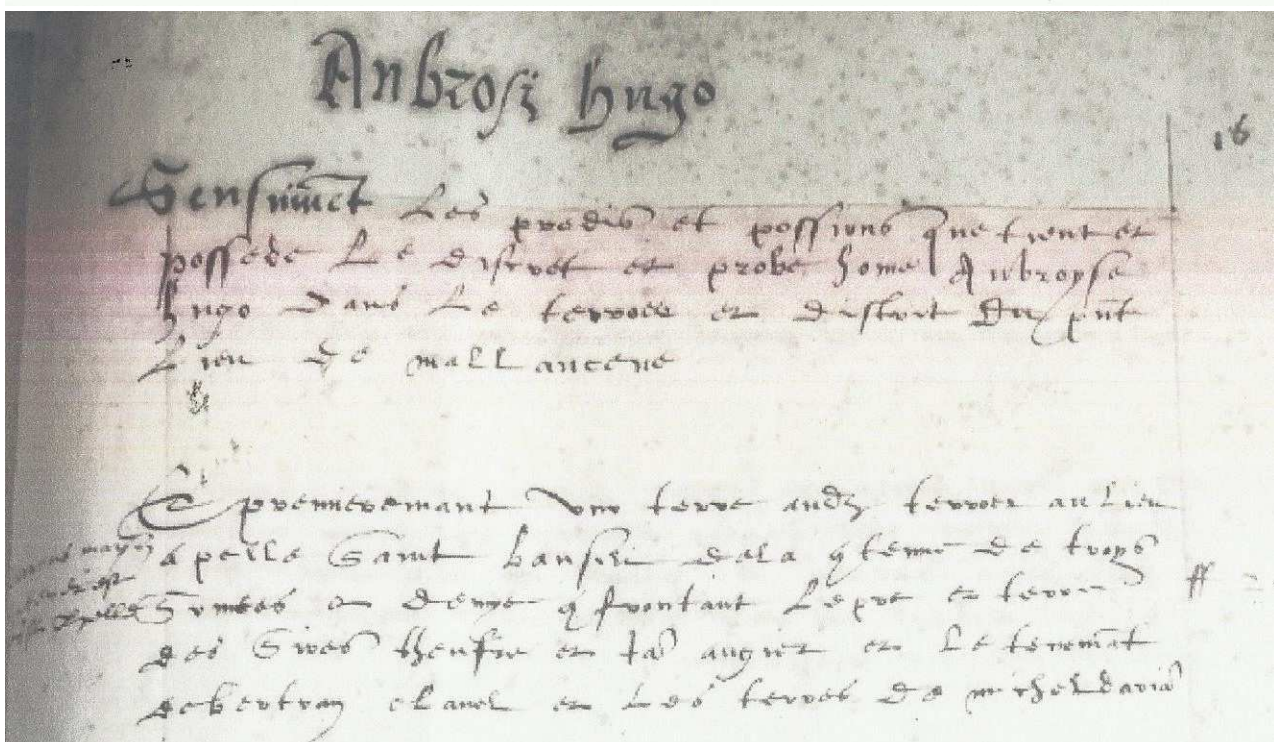 Anbrosi hugo
16
Sensuivēt Les predis et possions que tient et
possede Le discret et probe home Anbroyse
hugo dans Le terroer et distroit du pnt
Lieu de mallaucene
E premieremant une terre audz terroer au lieu
apelle Saint bausile de la qtenue de troys
Sumees et demye qfrontant Le pre et terre
des Sires et Jan augier et Le tenemāt
de bertran clauel et Les terres de michel
ff